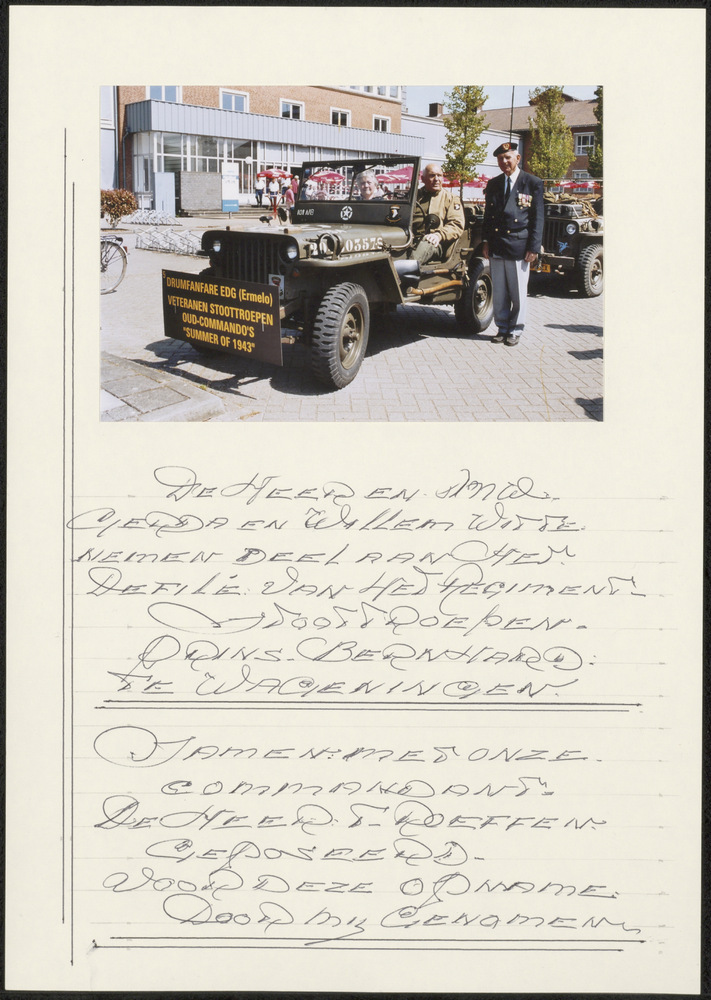 DRUMFANFARE EDG (Ermelo)
VETERANEN STOOTTROEPEN
OUD-COMMANDO'S
"SUMMER OF 1943"
DE HEER EN MW.
GERDA EN WILLEM WITTE.
NEMEN DEEL AAN HET.
DEFILÉ. VAN HET REGIMENT-
STOOTTROEPEN-
PRINS-BERNHARD:
TE WAGENINGEN.
SAMEN: MET ONZE.
COMMANDANT:
DE HEER. T. ROEFFEN:
GEPOSEERD-
VOOR DEZE OPNAME:
DOOR MIJ GENOMEN